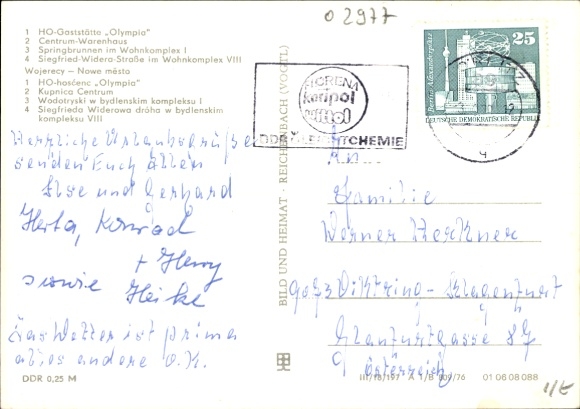 o 2977
1 HO-Gaststätte „Olympia"
2 Centrum-Warenhaus
3 Springbrunnen im Wohnkomplex I
4 Siegfried-Widera-Straße im Wohnkomplex VIII
Wojerecy – Nowe město
1 HO-hosćenc „Olympia"
2 Kupnica Centrum
3 Wodotryski w bydlenskim kompleksu I
4 Siegfrieda Widerowa dróha w bydlenskim
kompleksu VIII
Herrliche Urlaubsgrüße
senden Euch Allen
Else und Gerhard
Herta, Konrad
+ Henry
sowie Heike
Das Wetter ist prima
alles andere o.K.
DDR 0,25 M
BILD UND HEIMAT · REICHENBACH (VOGTL)
FLORENA
DDR LEICHTCHEMIE
25
Berlin, Alexanderplatz
DEUTSCHE DEMOKRATISCHE REPUBLIK
Familie
Werner
Klagenfurt
Österreich
01 08 08 088
1/E